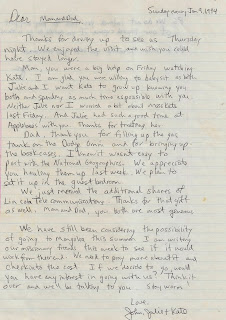 Sunday morn, Jan 9, 1994
Dear Mom and Dad,
Thanks for driving up to see us Thursday
night. We enjoyed the visit and wish you could
have stayed longer.
Mom, you were a big help on Friday watching
Kate. I am glad you are willing to babysit as both
Julie and I want Kate to grow up knowing you
both and spending as much time as possible with you.
Neither Julie nor I worried a bit about
last Friday. And Julie had such a good time at
Applebees with you. Thanks for treating her.
Dad, thank you for filling up the gas
tank on the Dodge Omni and for bringing up
the book cases. I know it wasn't easy to
part with the National Geographics. We appreciate
you hauling them up last week. We plan to
set it up in the guest bedroom.
We just received the additional shares of
Lincoln Telecommunications. Thanks for that gift
as well. Mom and Dad, you both are most generous.
We have still been considering the possibility
of going to this summer. I am writing
our missionary friends this week to see if it would
work for them and. We need to pray more about it and
check into the cost. If we decide to go, would
you have any interest in going with us? Think it
over and we'll be talking to you. Stay warm.
Love,
John, Julie & Kate